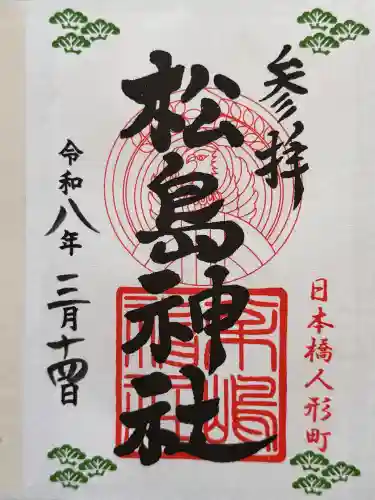 参拝
日本橋人形町
松島神社
令和八年三月十四日